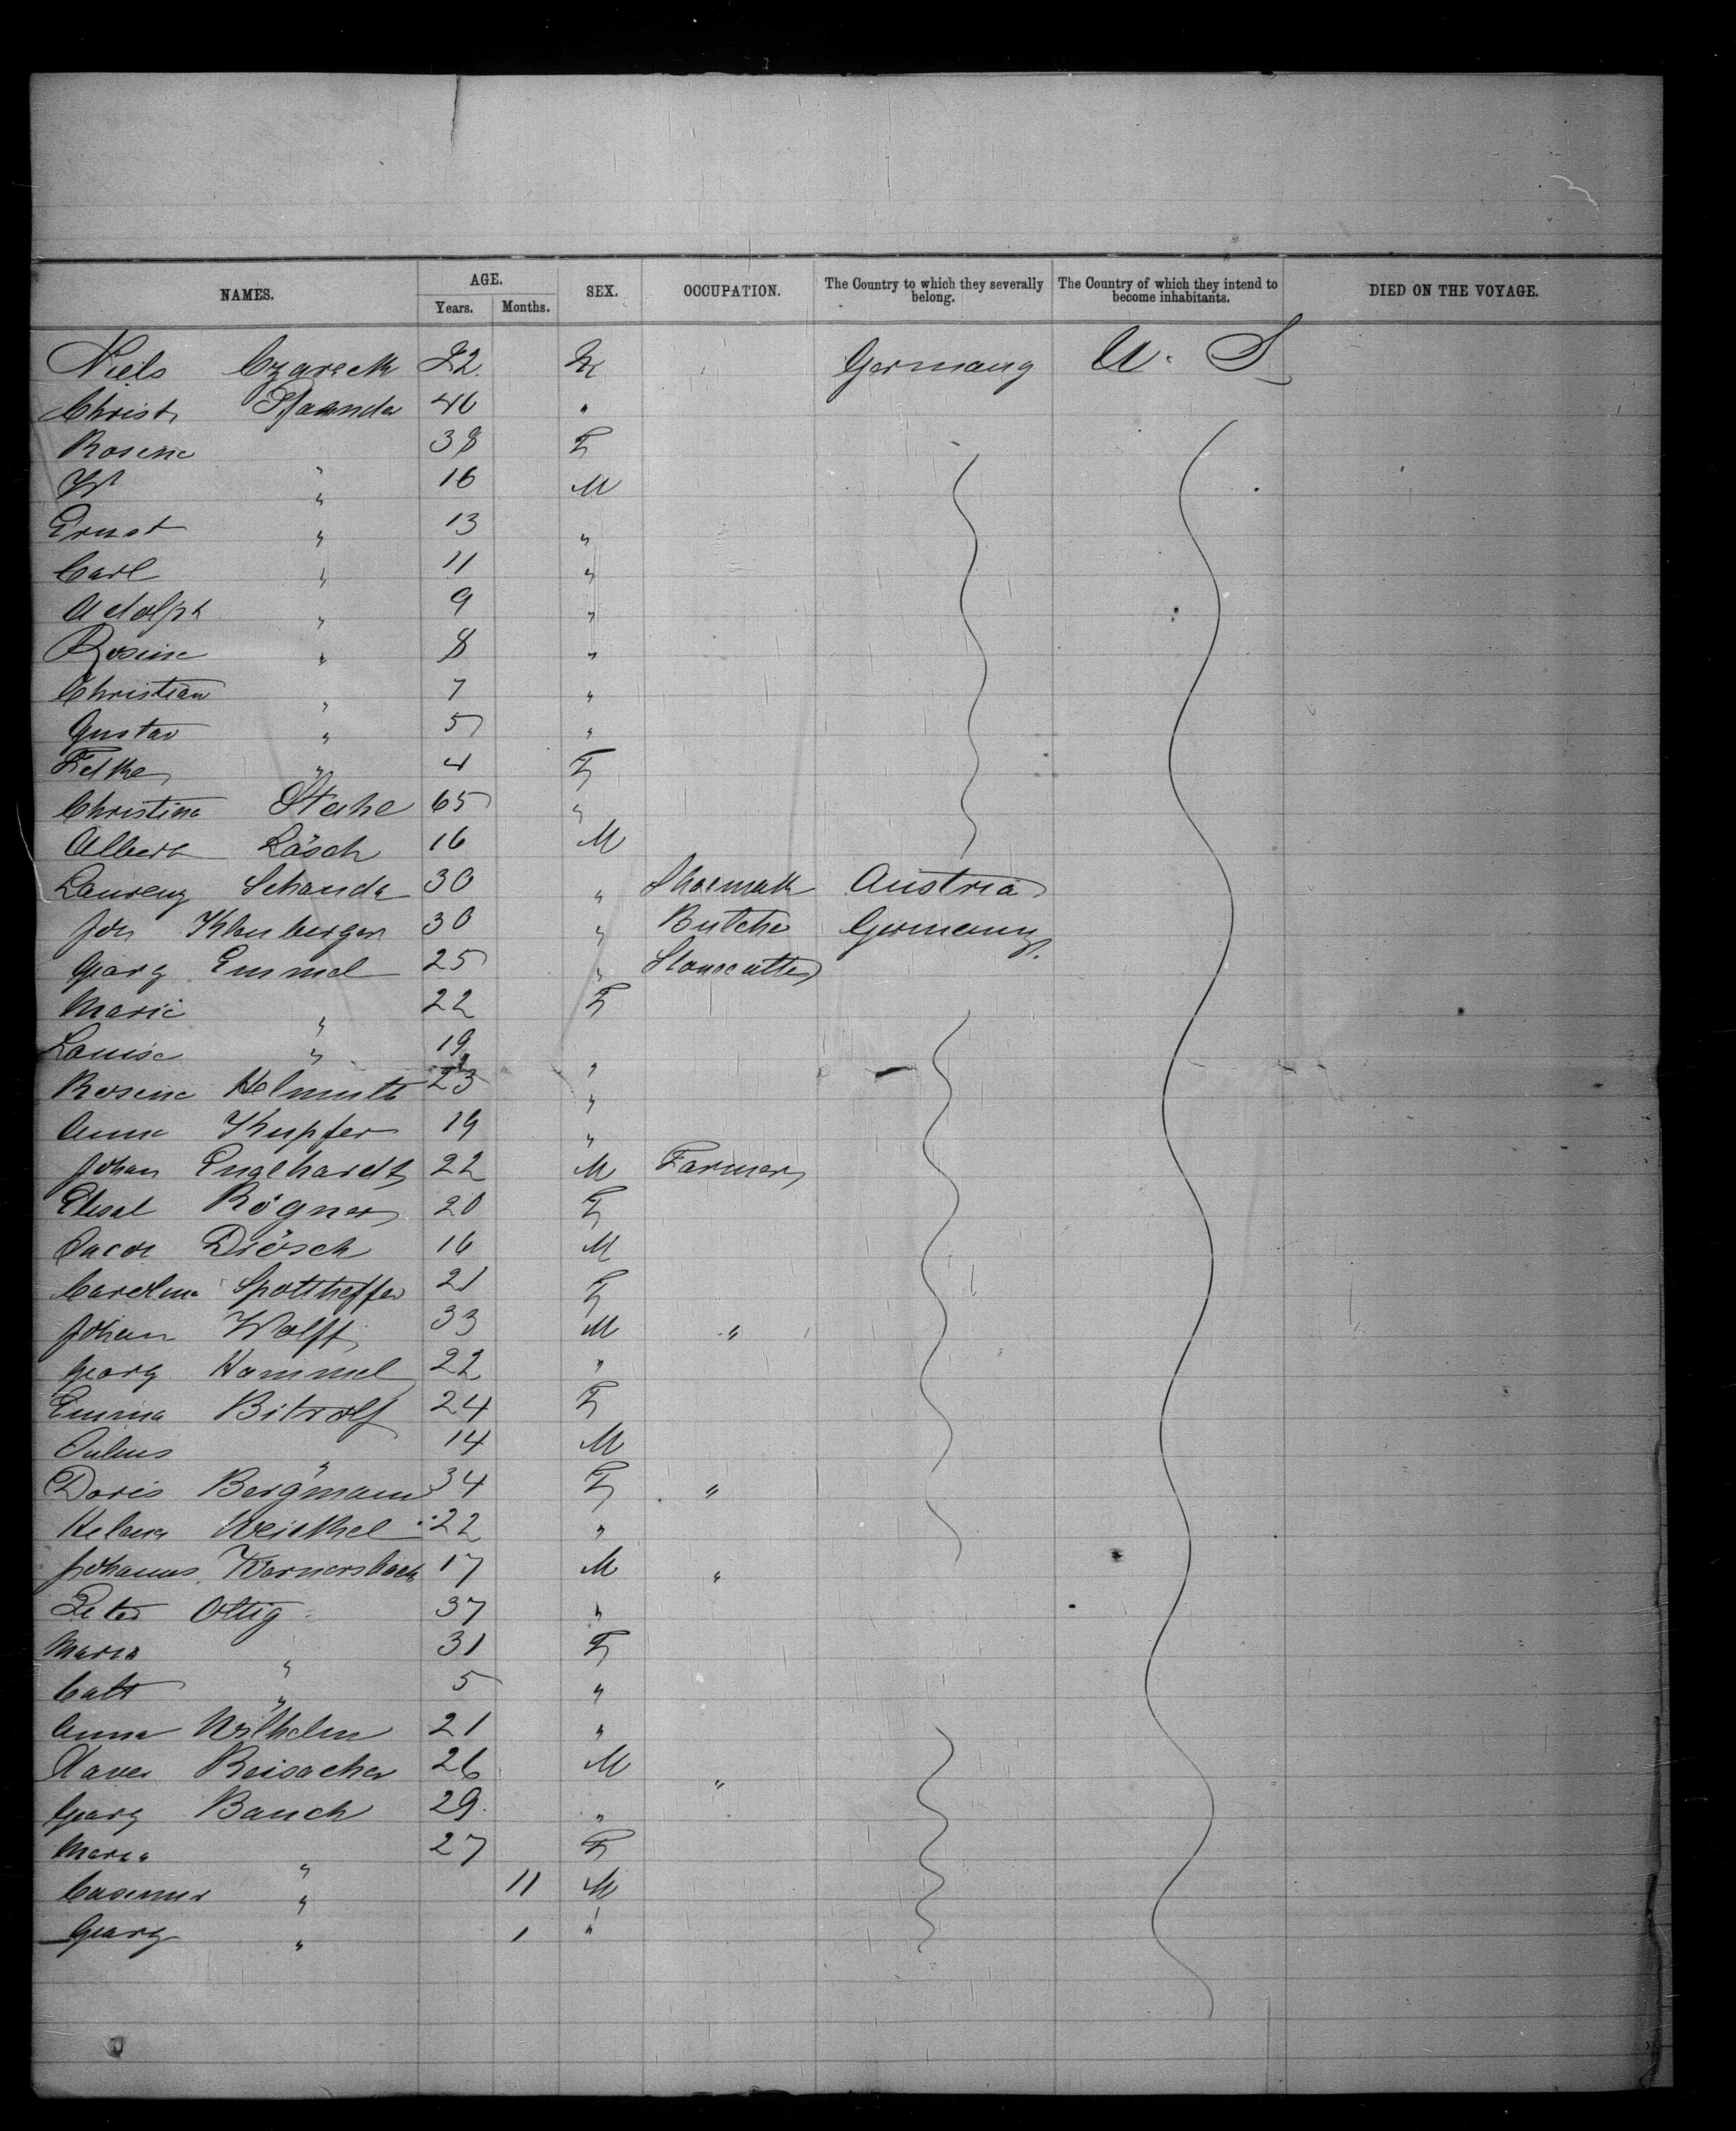 NAMES. AGE. Years. Months. SEX. OCCUPATION. The Country to which they severally belong. The Country of which they intend to become inhabitants. DIED ON THE VOYAGE.
Niels 22 M Germany U. S
Christ 46 "
Rosine 38 F
W " 16 M
Ernst " 13 "
Carl " 11 "
Adolph " 9 "
Rosine " 8 "
Christian " 7 "
Gustav " 5 "
" 4 F
Christina 65 "
Albert Lösch 16 M
Laurenz Schanda 30 " Shoemak Austria
Joh Klenberger 30 " Butche Germany
Georg Emmel 25 " Stonecutter
Marie " 22 F
Louise " 19 "
Rosine Helmuth 23 "
Anna Kupfer 19 "
Johan Engelhardt 22 M Farmer
Rögner 20 F
Jacob Drösch 16 M
Carolina 21 F
Johan Wolff 33 M "
Georg Hammel 22 "
Emma Bitrolf 24 F
Julius " 14 M
Doris Bergmann 34 F "
Helena Weickel 22 "
Johannes 17 M "
Peter Ottig 37 "
Maria " 31 F
Cath " 5 "
Anna Wilhelm 21 "
Xaver Reisacher 26 M "
Georg Bauch 29 "
Maria " 27 F
Casimir " 11 M
Georg " 1 "